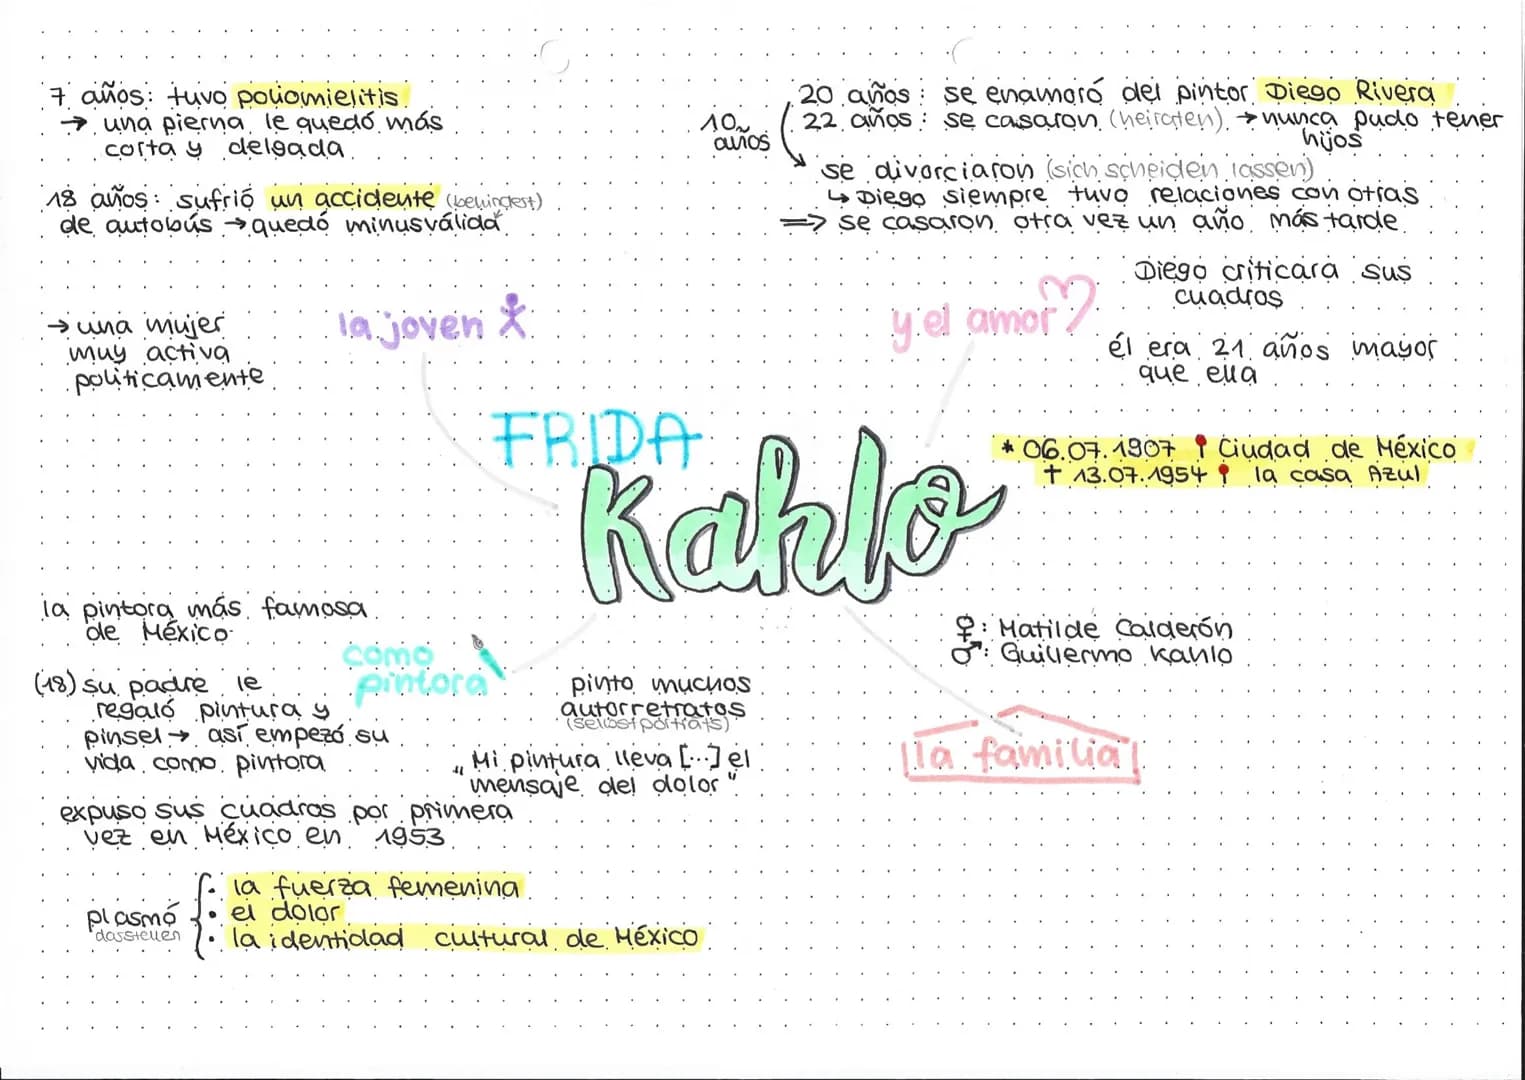 7 años: tuvo poliomielitis
→ una pierna le quedó más
corta y delgada
18 años: sufrió un accidente (behindert)
de autobús → quedó minusválida
→ una mujer
muy activa
políticamente
la joven
20 años: se enamoró del pintor Diego Rivera
22 años: se casaron (heiraten) → nunca pudo tener
hijos
10
años
se divorciaron (sich scheiden lassen)
↳ Diego siempre tuvo relaciones con otras
⇒ se casaron otra vez un año más tarde
y el amor
Diego criticara sus
cuadros
él era 21 años mayor
que ella
FRIDA
Kahlo
* 06.07.1907 Ciudad de México
† 13.07.1954 la casa Azul
la pintora más famosa
de México
como
pintora
(18) su padre le
regaló pintura y
pinsel → así empezó su
vida como pintora
pinto muchos
autorretratos
(selbstporträts)
„Mi pintura lleva [...] el
mensaje del dolor"
expuso sus cuadros por primera
vez en México en 1953
plasmó
dasstellen
• la fuerza femenina
• el dolor
• la identidad cultural de México
♀: Matilde Calderón
♂: Guillermo Kahlo
la familia